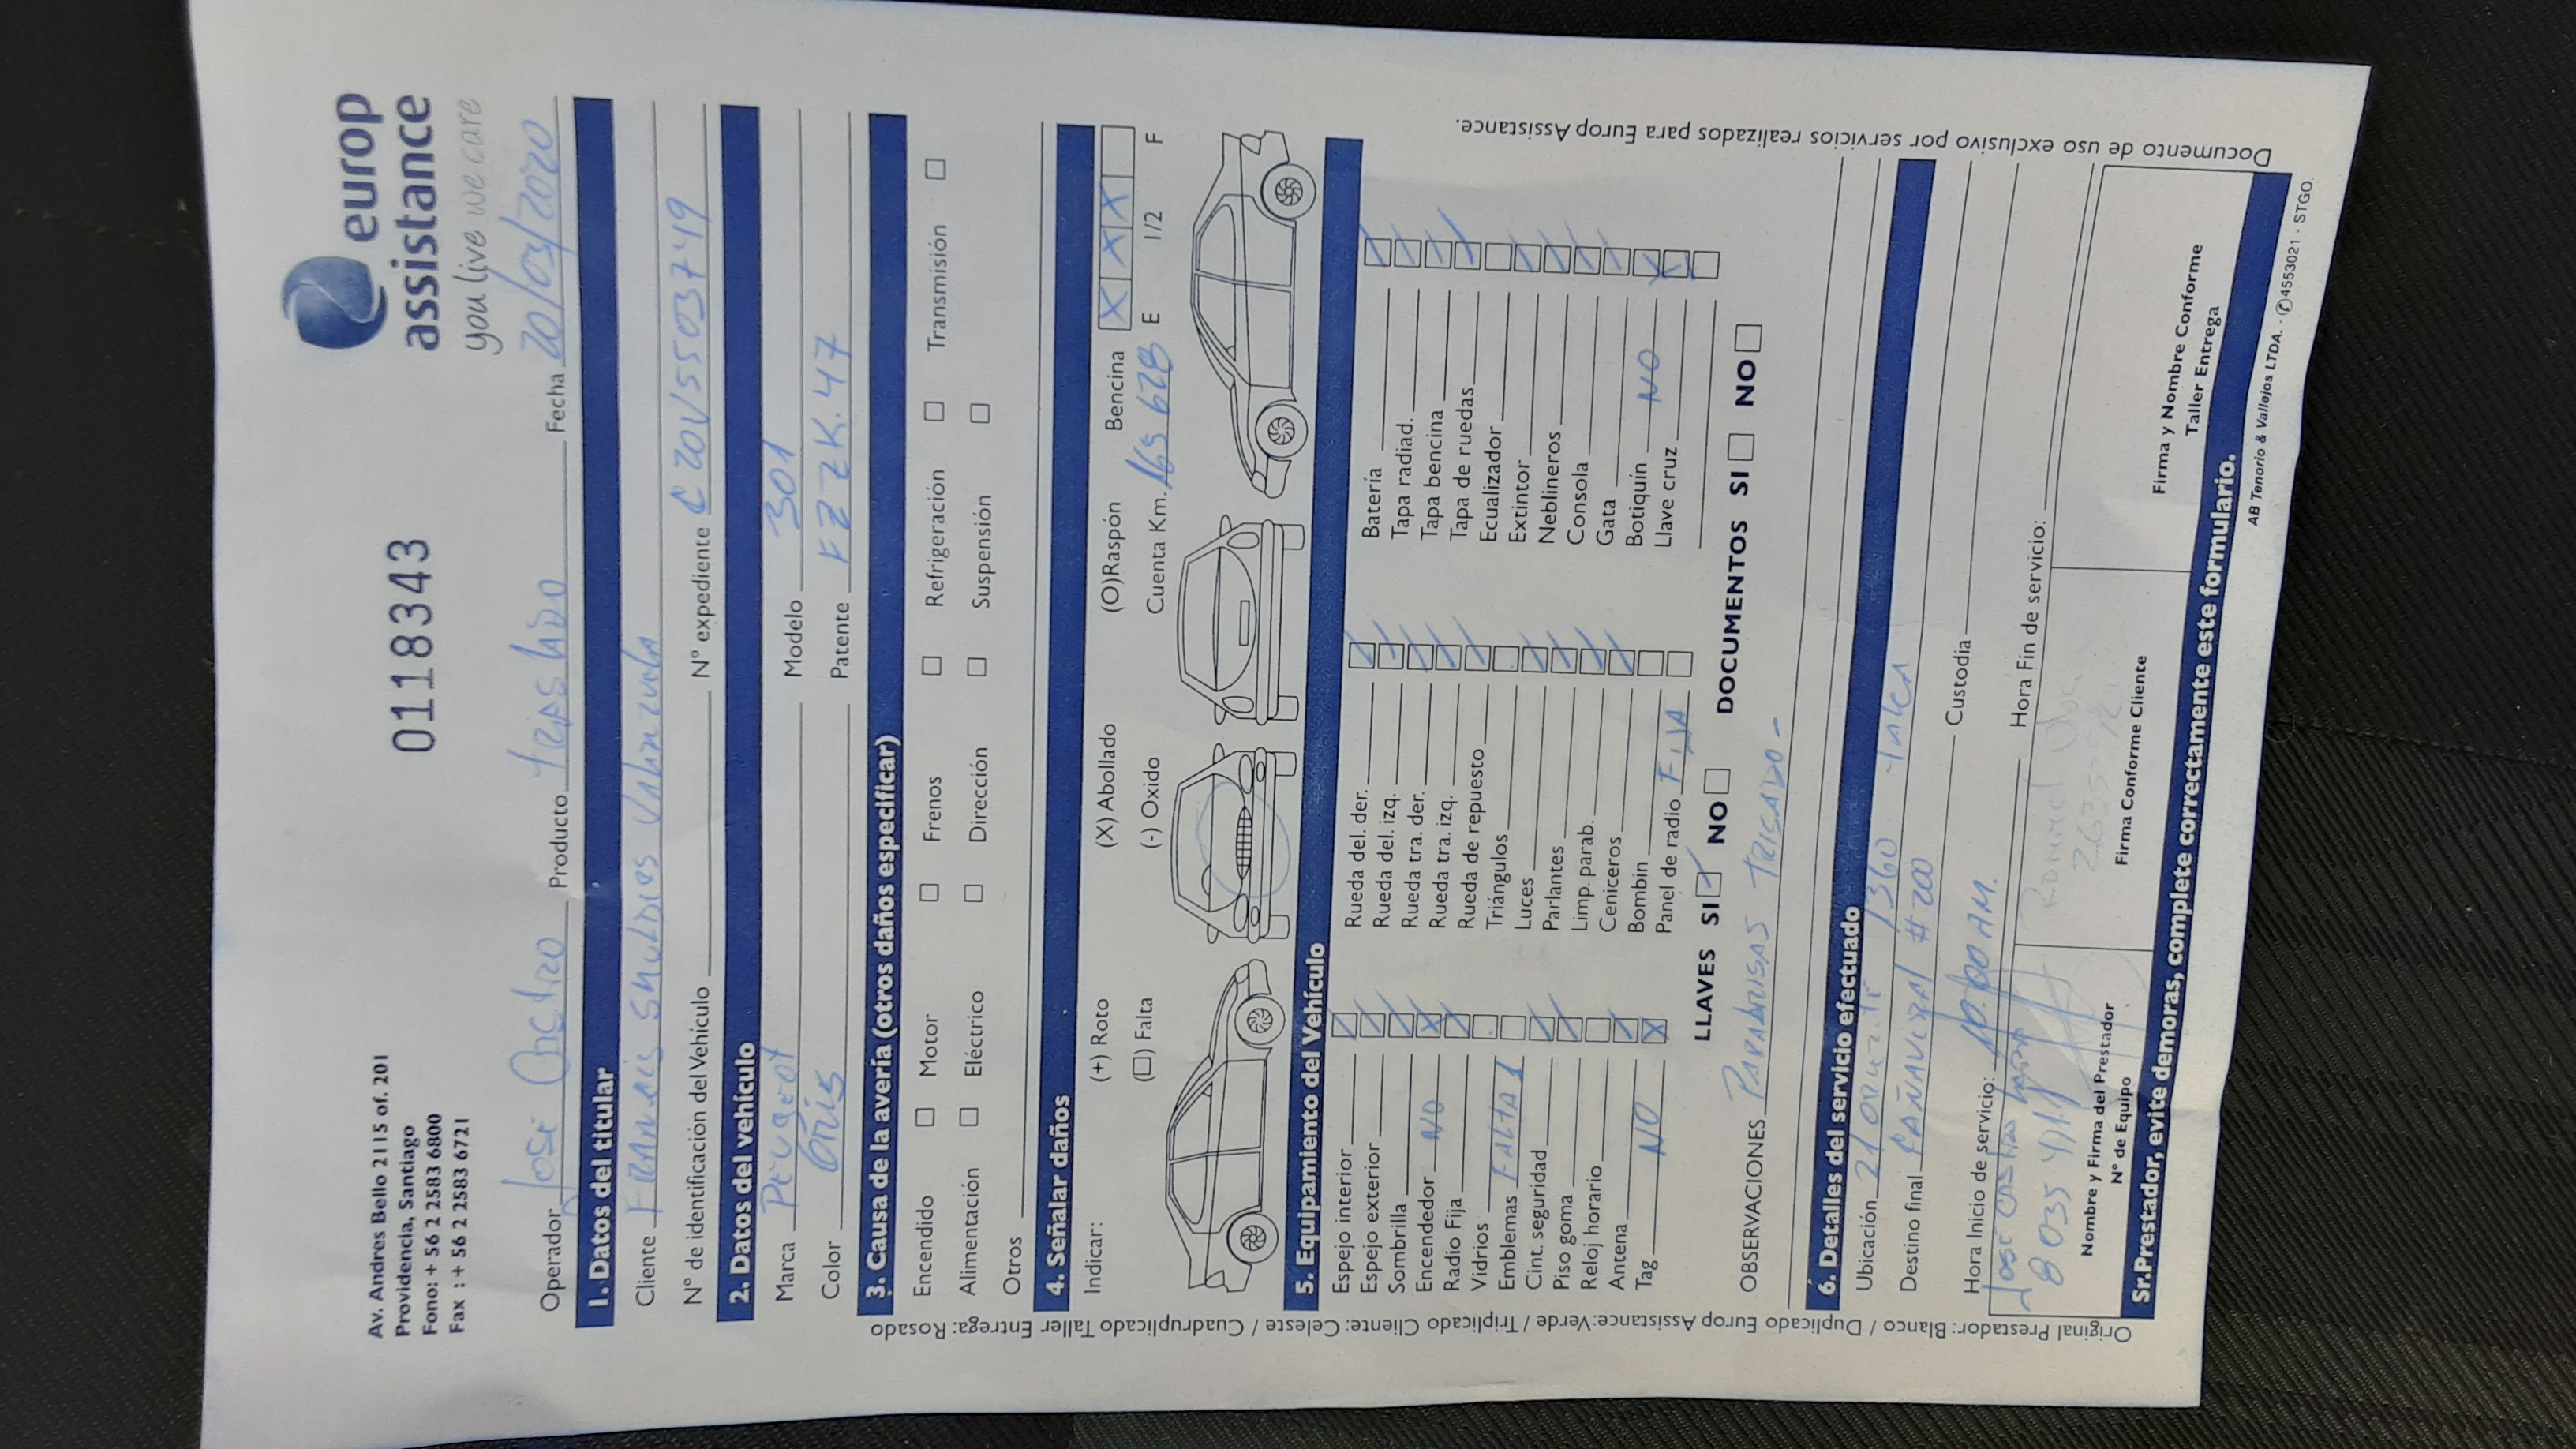 Av. Andres Bello 2115 of. 201
Providencia, Santiago
Fono: + 56 2 2583 6800
Fax : + 56 2 2583 6721
0118343
europ
assistance
you live we care
Operador José Castro Producto traslado Fecha 20/03/2020
1. Datos del titular
Cliente Francis Valenzuela
N° de identificación del Vehículo N° expediente C20V5503749
2. Datos del vehículo
Marca Peugeot Modelo 301
Color Gris Patente FZZK.47
3. Causa de la avería (otros daños especificar)
Encendido Motor Frenos Refrigeración Transmisión
Alimentación Eléctrico Dirección Suspensión
Otros
4. Señalar daños
Indicar: (+) Roto (X) Abollado (O)Raspón Bencina X X X
(□) Falta (-) Oxido Cuenta Km. 165628 E 1/2 F
5. Equipamiento del Vehículo
Espejo interior Rueda del. der. Batería
Espejo exterior Rueda del. izq. Tapa radiad.
Sombrilla Rueda tra. der. Tapa bencina
Encendedor NO Rueda tra. izq. Tapa de ruedas
Radio Fija Rueda de repuesto Ecualizador
Vidrios Triángulos Extintor
Emblemas FALTA 1 Luces Neblineros
Cint. seguridad Parlantes Consola
Piso goma Limp. parab. Gata
Reloj horario Ceniceros Botiquín NO
Antena Bombin Llave cruz
Tag NO Panel de radio FIJA
LLAVES SI NO DOCUMENTOS SI NO
OBSERVACIONES PARABRISAS TRISADO -
6. Detalles del servicio efectuado
Ubicación 21 Oriente 1360 Talca
Destino final CAÑAVERAL # 200
Hora Inicio de servicio: Custodia
Hora Fin de servicio:
José Castro
Nombre y Firma del Prestador
N° de Equipo
Firma Conforme Cliente
Firma y Nombre Conforme
Taller Entrega
Sr.Prestador, evite demoras, complete correctamente este formulario.
AB Tenorio & Vallejos LTDA. - ✆4553021 - STGO.
Original Prestador: Blanco / Duplicado Europ Assistance:Verde / Triplicado Cliente: Celeste / Cuadruplicado Taller Entrega: Rosado
Documento de uso exclusivo por servicios realizados para Europ Assistance.